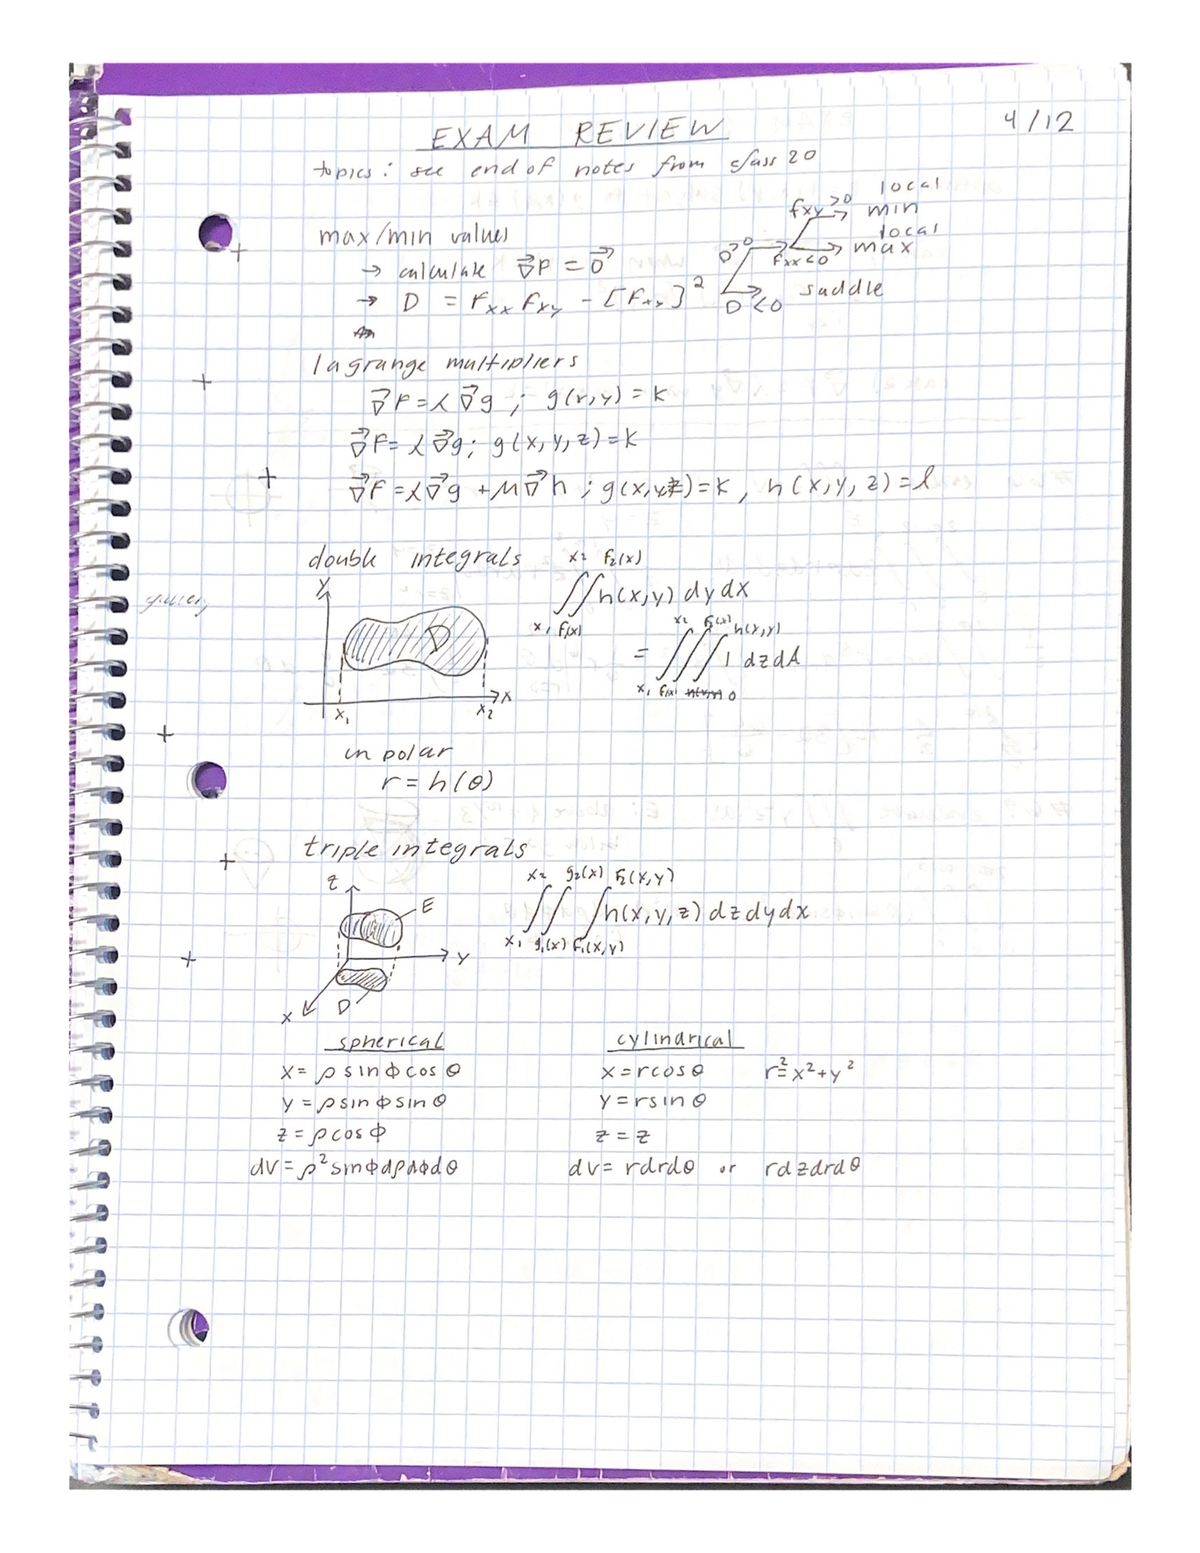 EXAM REVIEW
4/12
topics: see end of notes from class 20
max/min values
→ calculate ∇⃗F = 0⃗
→ D = Fxx Fxy - [Fxy]²
D>0 → fxy >0 → local min
Fxx<0 → local max
D<0 → saddle
lagrange multipliers
∇⃗F = λ∇⃗g ; g(x,y) = k
∇⃗F = λ∇⃗g ; g(x,y,z) = k
∇⃗F = λ∇⃗g + μ∇⃗h ; g(x,y,z) = k, h(x,y,z) = l
double integrals
x2 F2(x)
∫∫h(x,y) dydx
x1 F1(x)
x2 F2(x) h(x,y)
= ∫∫∫ 1 dzdA
x1 F1(x) h(x,y) 0
y
D
x
x1 x2
in polar
r = h(θ)
triple integrals
x2 g2(x) F2(x,y)
∫∫∫h(x,y,z) dzdydx
x1 g1(x) F1(x,y)
z
E
y
x
D
spherical
x = ρ sinφ cosθ
y = ρ sinφ sinθ
z = ρ cosφ
dv = ρ² sinφ dρdφdθ
cylindrical
x = rcosθ r² = x² + y²
y = rsinθ
z = z
dv = rdrdθ or rdzdrdθ